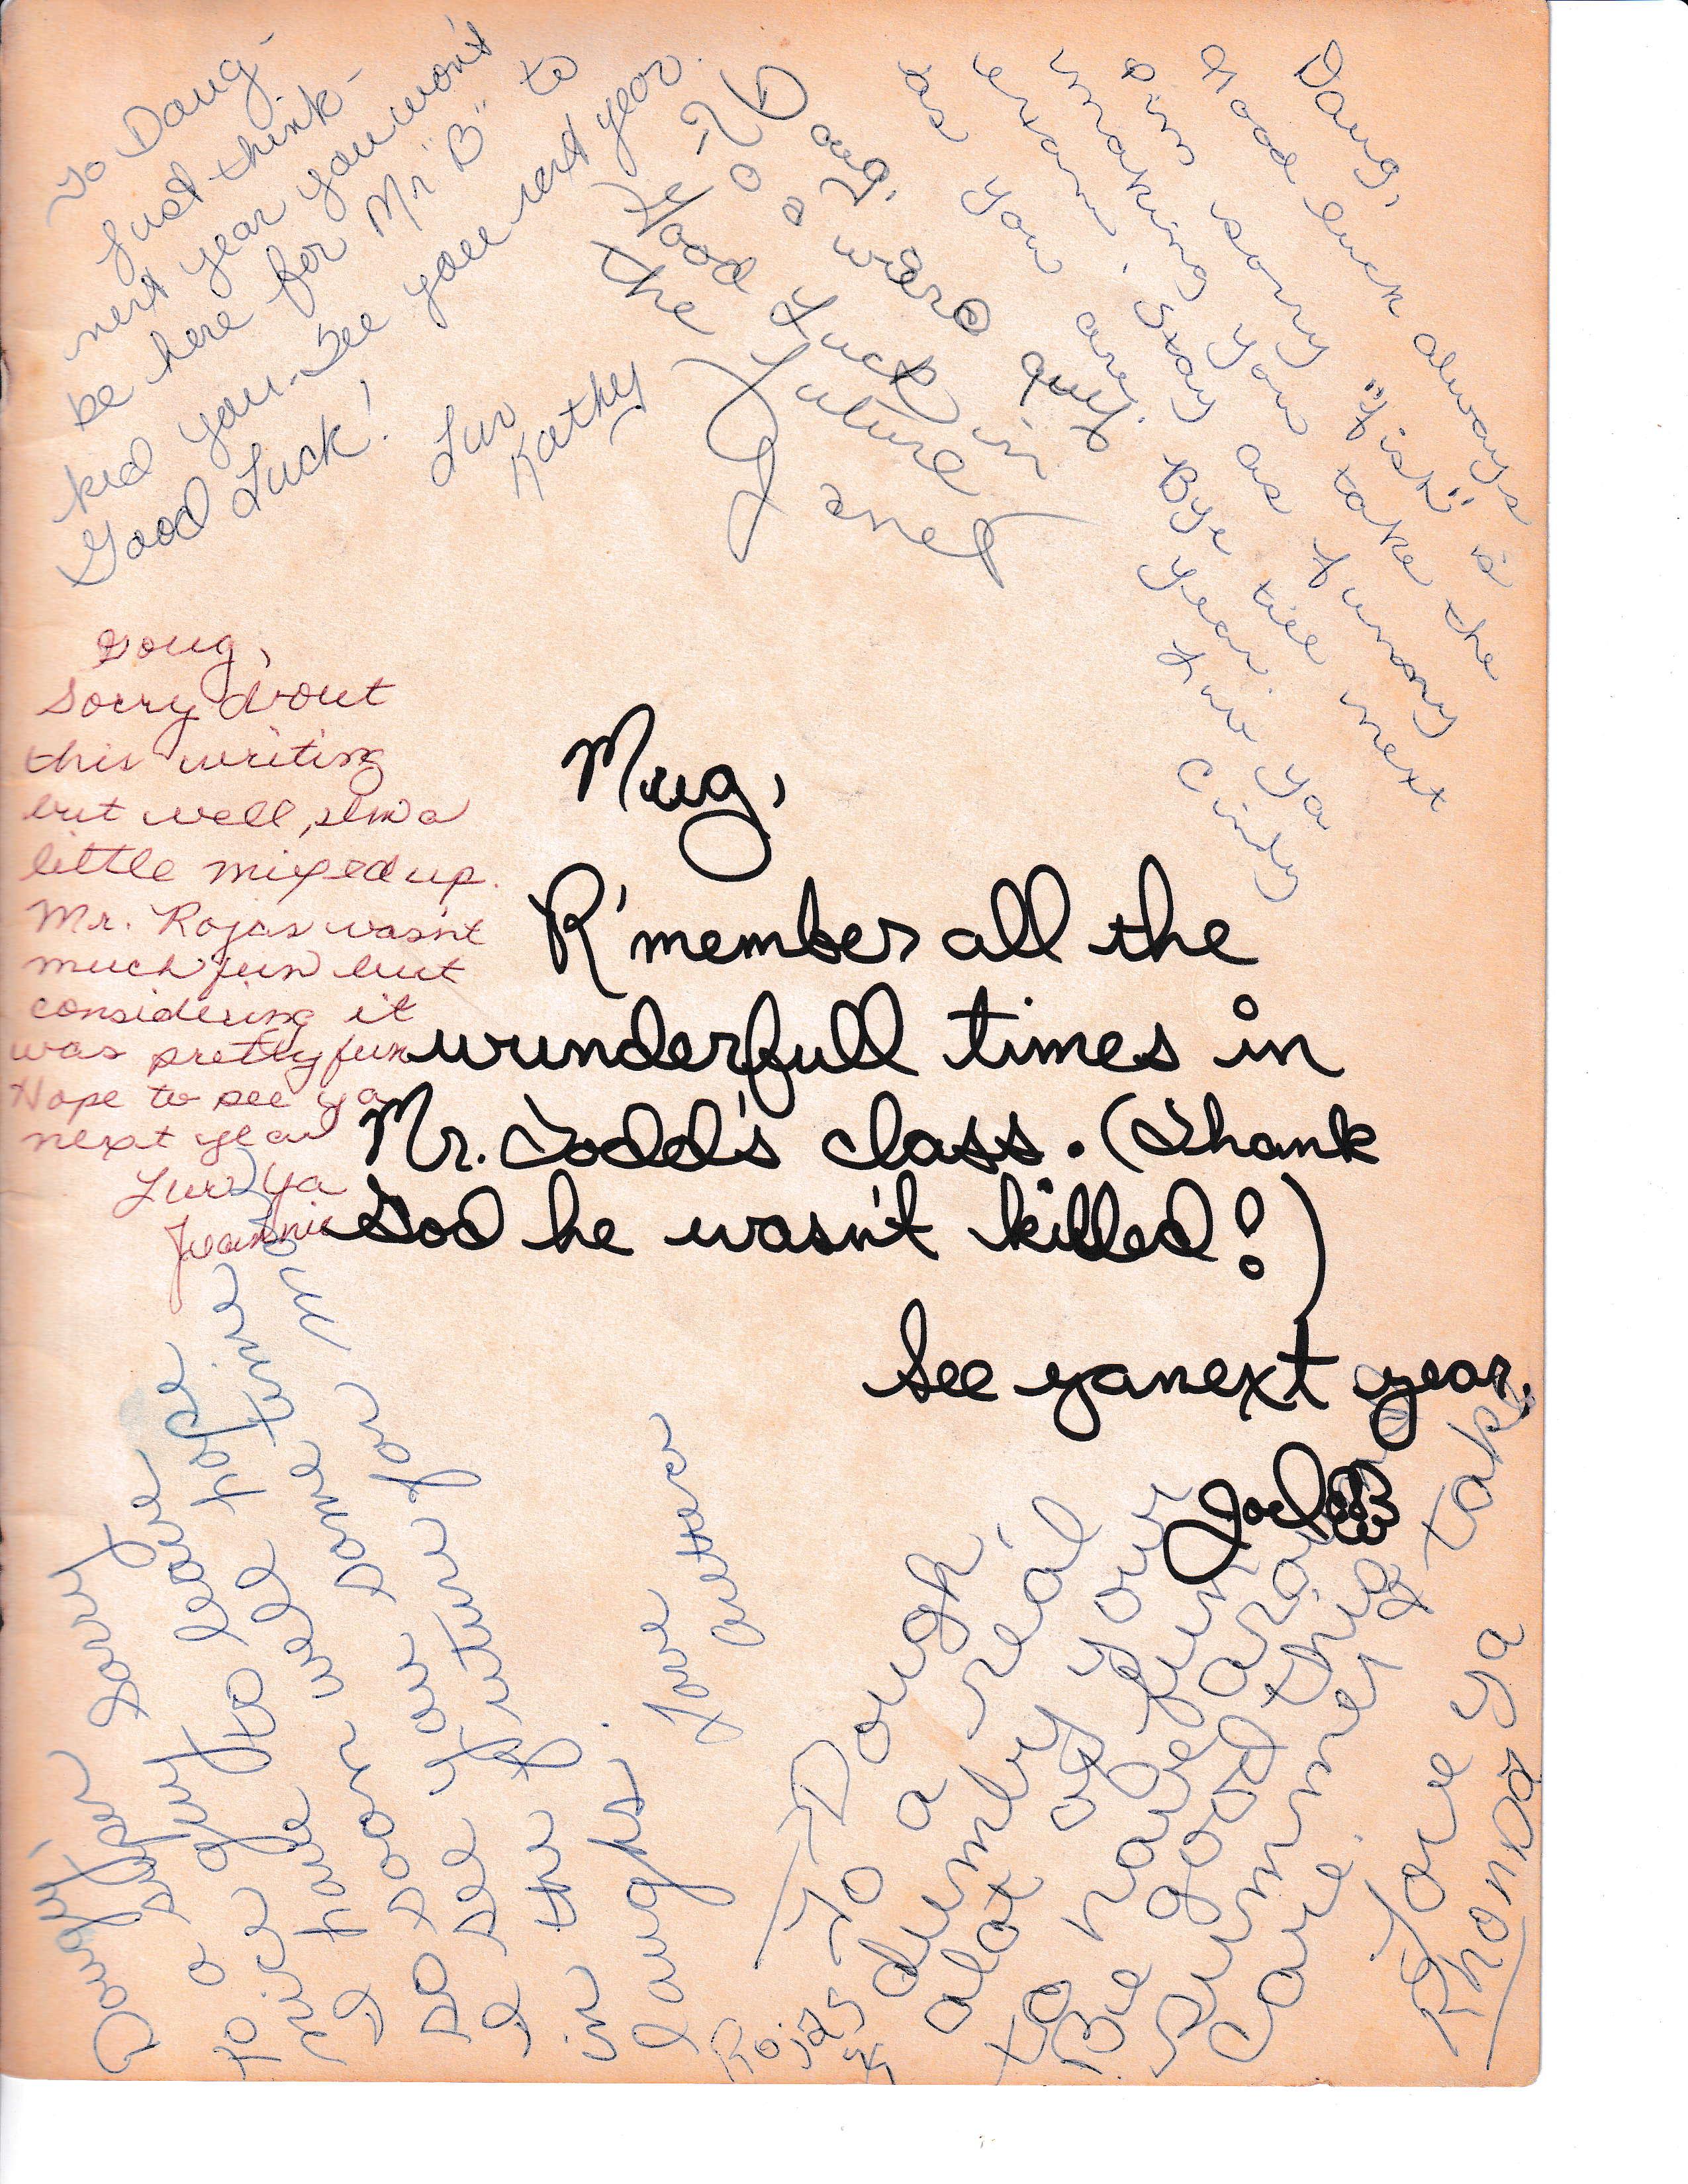 To Doug -
Just think -
next year you won't
be here for Mr "B" to
kid you - See you next year.
Good Luck!
Luv
Kathy
Doug,
To a weird guy.
Good Luck in
the Future
Janet
Doug,
Good luck always
& im sorry "Fish" is
making you take the
exam. Stay as funny
as you are. Bye till next
year.
Luv ya
Cindy
Doug,
Sorry about
this writing
but well, Im a
little mixed up.
Mr. Rojas wasn't
much fun but
considering it
was pretty fun
Hope to see ya
next year
Luv Ya
Jeannie
Mug,
R'member all the
wunderfull times in
Mr. Todd's class. (Thank
God he wasn't killed!)
See ya next year.
Joel
Dougy,
To a super sorry
nice guy to leave
I have well hope
so soon time
I see you some
in the future for
laughs.
Love
To Dough,
To a real
dumby your
alot of fun
to have around
Be good this
summer & take
care.
Love ya
Rhonda
Rojas